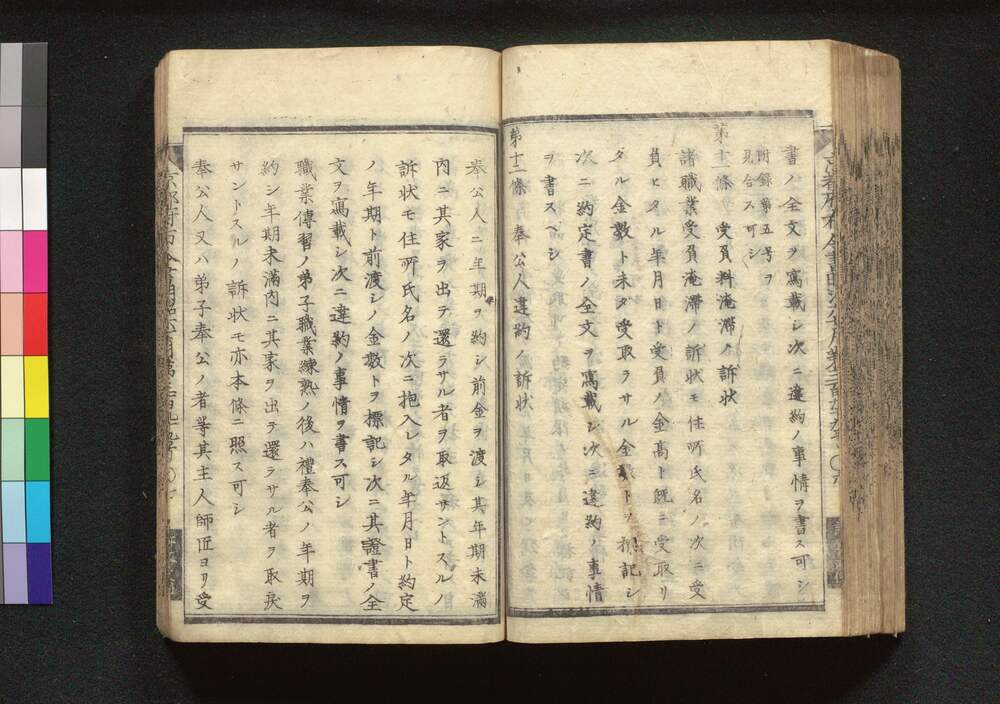 書ノ全文ヲ寫載シ次ニ違約ノ事情ヲ書ス可シ
附録第五号ヲ
見合ス可シ
第十一條 受員料淹滞ノ訴状
諸職業受員淹滞ノ訴状モ住所氏名ノ次ニ受
員ヒタル年月日ト受員ノ金高ト既ニ受取リ
タル金数ト未タ受取ラサル金数トヲ標記シ
次ニ約定書ノ全文ヲ寫載シ次ニ違約ノ事情
ヲ書スベシ
第十二條 奉公人違約ノ訴状
奉公人ニ年期ヲ約シ前金ヲ渡シ其年期未満
内ニ其家ヲ出テ還ラサル者ヲ取返サントスルノ
訴状モ住所氏名ノ次ニ抱入レタル年月日ト約定
ノ年期ト前渡シノ金数トヲ標記シ次ニ其證書ノ全
文ヲ寫載シ次ニ違約ノ事情ヲ書ス可シ
職業傳習ノ弟子職業練熟ノ後ハ禮奉公ノ年期ヲ
約シ年期未満内ニ其家ヲ出テ還ラサル者ヲ取戻
サントスルノ訴状モ亦本條ニ照ス可シ
奉公人又ハ弟子奉公ノ者等其主人師匠ヨリ受